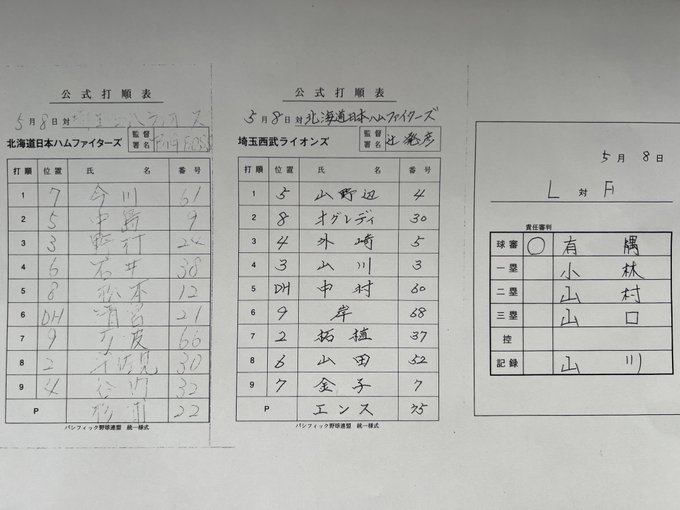 公式打順表
5月8日対埼玉西武ライオンズ
北海道日本ハムファイターズ 監督署名
打順 位置 氏名 番号
1 7 今川 61
2 5 中島 9
3 3 野村 24
4 6 石井 38
5 8 松本 12
6 DH 清宮 21
7 9 万波 66
8 2 宇佐見 30
9 4 谷内 32
P 杉浦 22
パシフィック野球連盟 統一様式
公式打順表
5月8日対北海道日本ハムファイターズ
埼玉西武ライオンズ 監督署名 辻発彦
打順 位置 氏名 番号
1 5 山野辺 4
2 8 オグレディ 30
3 4 外崎 5
4 3 山川 3
5 DH 中村 60
6 9 岸 68
7 2 柘植 37
8 6 山田 52
9 7 金子 7
P エンス 75
パシフィック野球連盟 統一様式
5月8日
L対F
責任審判
球審 ○ 有隅
一塁 小林
二塁 山村
三塁 山口
控
記録 山川